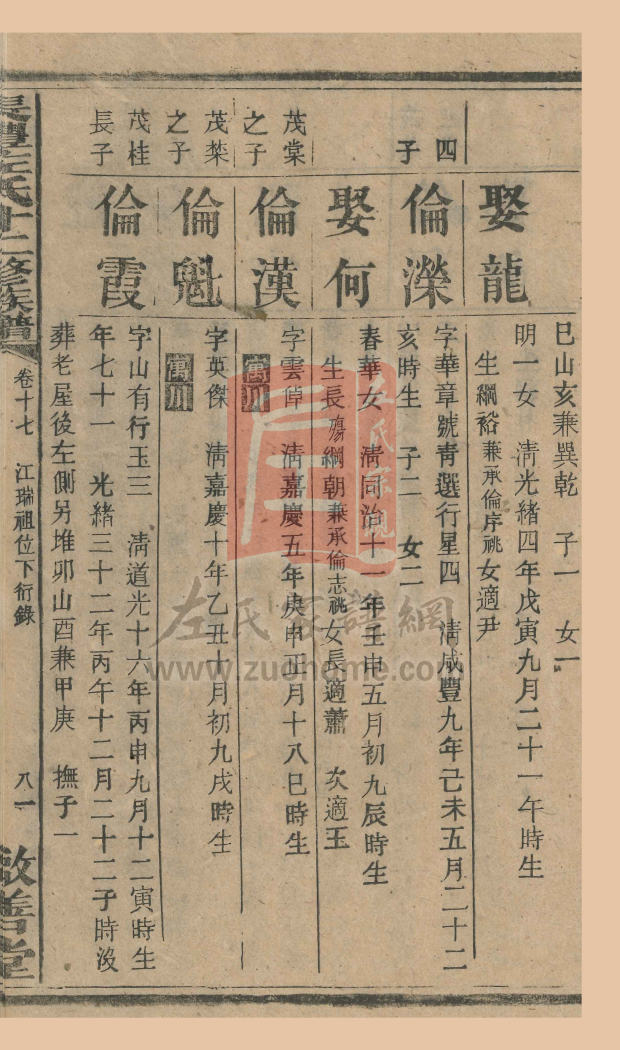 巳山亥兼巽乾 子一 女一
娶龍
明一女 清光緒四年戊寅九月二十一午時生
生綱裕兼承倫序祧女適尹
四子
倫濼
字華章號青選行星四 清咸豐九年己未五月二十二
亥時生 子二 女二
娶何
春華女 清同治十一年壬申五月初九辰時生
生長殤綱朝兼承倫志祧女長適蕭 次適玉
茂棠之子
倫漢
字雲倬 清嘉慶五年庚申正月十八巳時生
寓川
茂菜之子
倫魁
字英傑 清嘉慶十年乙丑十月初九戌時生
寓川
茂桂長子
倫霞
字山有行玉三 清道光十六年丙申九月十二寅時生
年七十一 光緒三十二年丙午十二月二十二子時沒
葬老屋後左側另堆卯山酉兼甲庚 撫子一
長豐左氏十二修族譜
卷十七 江瑞祖位下衍錄
八一
敬善堂
左氏宗親
左氏家譜網
www.zuohome.com